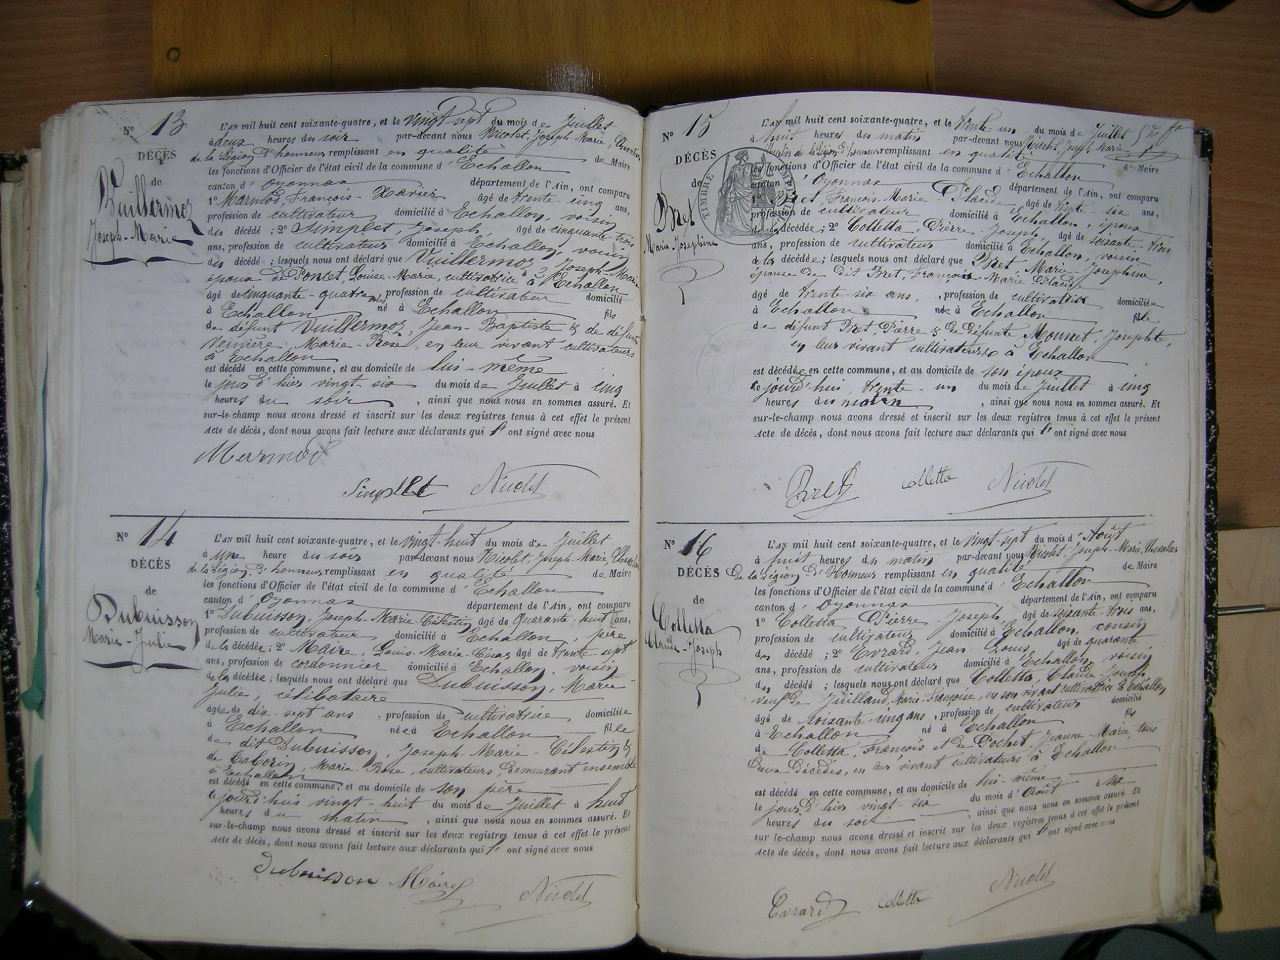 N° 13
DÉCÈS
de
Vuillermoz
Joseph-Marie
L'AN mil huit cent soixante-quatre, et le vingt-sept du mois de Juillet
à deux heures du soir par-devant nous Nicolet, Joseph-Marie, Chevalier
de la Légion d'honneur remplissant en qualité de Maire
les fonctions d'Officier de l'état civil de la commune d'Echallon
canton d'Oyonnax département de l'Ain, ont comparu
1° Marmod, François-Xavier âgé de trente cinq ans,
profession de cultivateur domicilié à Echallon, voisin
du décédé; 2° Simplet, Joseph, âgé de cinquante trois
ans, profession de cultivateur domicilié à Echallon, voisin
du décédé; lesquels nous ont déclaré que Vuillermoz, Joseph-Marie
époux de Poncet, Louise-Marie, cultivatrice à Echallon
âgé de cinquante-quatre ans, profession de cultivateur domicilié
à Echallon né à Echallon fils
de défunt Vuillermoz, Jean-Baptiste & de défunte
Marie-Rose, en leur vivant cultivateurs
à Echallon
est décédé en cette commune, et au domicile de lui-même
le jour d'hier vingt-six du mois de Juillet à cinq
heures du soir, ainsi que nous nous en sommes assuré. Et
sur-le-champ nous avons dressé et inscrit sur les deux registres tenus à cet effet le présent
acte de décès, dont nous avons fait lecture aux déclarants qui l' ont signé avec nous
Marmod
Simplet Nicolet
N° 14
DÉCÈS
de
Dubuisson
Marie-Julie
L'AN mil huit cent soixante-quatre, et le vingt-huit du mois de Juillet
à une heure du soir par-devant nous Nicolet, Joseph-Marie, Chevalier
de la Légion d'honneur remplissant en qualité de Maire
les fonctions d'Officier de l'état civil de la commune d'Echallon
canton d'Oyonnax département de l'Ain, ont comparu
1° Dubuisson, Joseph-Marie-Célestin âgé de quarante-huit ans,
profession de cultivateur domicilié à Echallon, père
de la décédée; 2° Maire, Louis-Marie âgé de trente-sept
ans, profession de cordonnier domicilié à Echallon, voisin
de la décédée; lesquels nous ont déclaré que Dubuisson, Marie-
Julie, célibataire
âgée de dix-sept ans, profession de cultivatrice domiciliée
à Echallon née à Echallon fille
de dit Dubuisson, Joseph-Marie-Célestin &
de Marie-Rose, cultivateurs, demeurant ensemble
à Echallon
est décédé en cette commune, et au domicile de son père
le jourd'hui vingt-huit du mois de Juillet à huit
heures du matin, ainsi que nous nous en sommes assuré. Et
sur-le-champ nous avons dressé et inscrit sur les deux registres tenus à cet effet le présent
acte de décès, dont nous avons fait lecture aux déclarants qui l' ont signé avec nous
Dubuisson Maire Nicolet
N° 15
DÉCÈS
de
Bret
Marie-Joséphine
TIMBRE
L'AN mil huit cent soixante-quatre, et le trente-un du mois de Juillet
à huit heures du matin par-devant nous Nicolet, Joseph-Marie
remplissant en qualité de Maire
les fonctions d'Officier de l'état civil de la commune d'Echallon
canton d'Oyonnax département de l'Ain, ont comparu
1° Bret, François-Marie Claude âgé de six ans,
profession de cultivateur domicilié à Echallon, époux
de la décédée; 2° Colletta, Pierre-Joseph âgé de soixante-trois
ans, profession de cultivateur domicilié à Echallon, voisin
de la décédée; lesquels nous ont déclaré que Bret, Marie-Joséphine,
épouse de dit Bret, François-Marie Claude
âgé de trente-six ans, profession de cultivatrice domiciliée
à Echallon née à Echallon fille
de défunt Bret, Pierre & de défunte Josephte,
en leur vivant cultivateurs à Echallon
est décédée en cette commune, et au domicile de son époux
le jourd'hui trente-un du mois de Juillet à cinq
heures du matin, ainsi que nous nous en sommes assuré. Et
sur-le-champ nous avons dressé et inscrit sur les deux registres tenus à cet effet le présent
acte de décès, dont nous avons fait lecture aux déclarants qui l' ont signé avec nous
Bret Colletta Nicolet
N° 16
DÉCÈS
de
Colletta
Claude-Joseph
L'AN mil huit cent soixante-quatre, et le vingt-sept du mois d'Août
à huit heures du matin par-devant nous Nicolet, Joseph-Marie, Chevalier
de la Légion d'Honneur remplissant en qualité de Maire
les fonctions d'Officier de l'état civil de la commune d'Echallon
canton d'Oyonnax département de l'Ain, ont comparu
1° Colletta Pierre-Joseph, âgé de soixante-trois ans,
profession de cultivateur domicilié à Echallon, cousin
du décédé; 2° Evrard, Jean-Louis âgé de quarante
ans, profession de cultivateur domicilié à Echallon, voisin
du décédé; lesquels nous ont déclaré que Colletta, Claude-Joseph,
veuf de Juilland, Marie-Françoise, en son vivant cultivatrice à Echallon
âgé de soixante-cinq ans, profession de cultivateur domicilié
à Echallon né à Echallon fils
de Colletta, François et de Pochet, Jeanne-Marie, tous
deux décédés, en leur vivant cultivateurs à Echallon
est décédé en cette commune, et au domicile de lui-même
le jour d'hier vingt-six du mois d'Août à
heures du soir, ainsi que nous nous en sommes assuré. Et
sur-le-champ nous avons dressé et inscrit sur les deux registres tenus à cet effet le présent
acte de décès, dont nous avons fait lecture aux déclarants qui l' ont signé avec nous
Evrard Colletta Nicolet